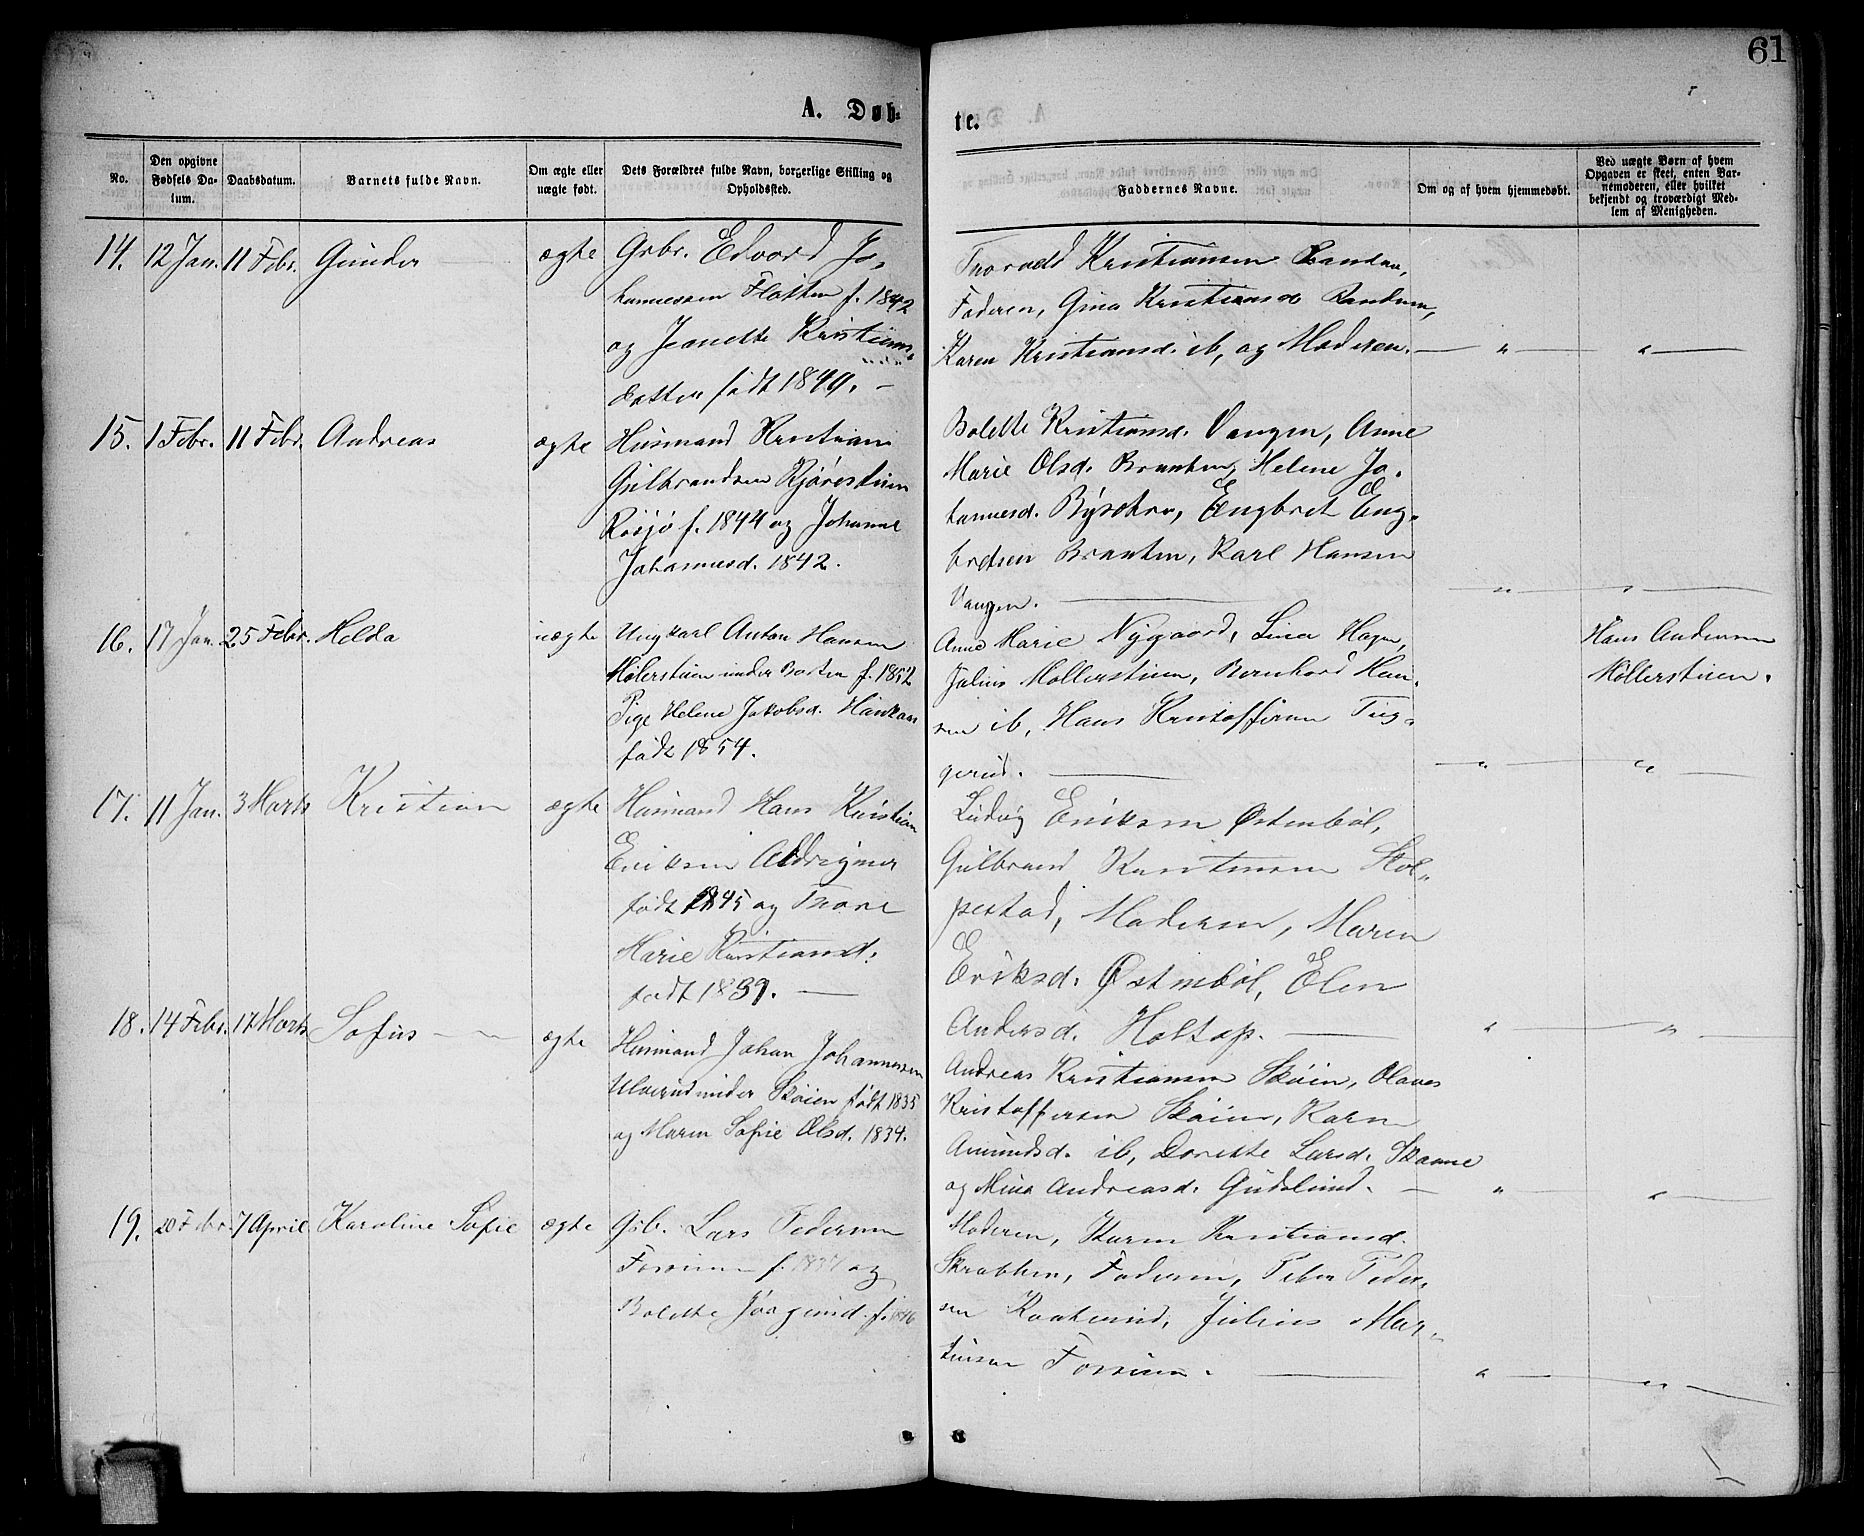 61
A. Døb-
te.
No.
Den opgivne
Fødsels Da-
tum.
Daabsdatum.
Barnets fulde Navn.
Om ægte eller
uægte født.
Dets Forældres fulde Navn, borgerlige Stilling og
Opholdssted.
Faddernes Navne.
Om og af hvem hjemmedøbt.
Ved uægte Børn af hvem
Opgaven er skeet, enten Bar-
nemoderen, eller hvilket
bekjendt og troværdigt Med-
lem af Menigheden.
14. 12 Jan. 11 Febr. Gunder ægte
Gsbr. Edvard Jo-
hannessen Flaten f. 1842
og Jeanette Kristians-
datter født 1849.
Thorvald Kristiansen
Faderen, Gina Kristiansd.
Karen Kristiansd. ib, og Moderen.
15. 1 Febr. 11 Febr. Andreas ægte
Husmand Kristian
Gulbrandsen
Røsjø f. 1844 og Johanne
Johannesd. 1842.
Bolette Kristiansd. Vangen, Anne
Marie Olsd. Braaten, Helene Jo-
hannesd. Engbret Eng-
bretsen Braaten, Karl Hansen
Vangen.
16. 17 Jan. 25 Febr. Helda uægte
Ungkarl Anton Hansen
Møllerstuen under f. 1852
Pige Helene Jakobsd.
født 1854.
Anne Marie Nygaard, Lina Hagen,
Julius Møllerstuen, Bernhard Han-
sen ib, Hans Kristoffersen Tug-
gerud.
Hans Andersen
Møllerstuen.
17. 11 Jan. 3 Marts Kristian ægte
Husmand Hans Kristian
Eriksen
født 1845 og Thore
Marie Kristiansd.
født 1839.
Ludvig Eriksen Østenbøl,
Gulbrand Kristiansen Stol-
pestad, Moderen, Maren
Eriksd. Østenbøl, Elen
Andersd. Holtop.
18. 14 Febr. 17 Marts Sofus ægte
Husmand Johan Johannessen
Ulverud under Skøien født 1835
og Maren Sofie Olsd. 1834.
Andreas Kristiansen Skøien, Olaves
Kristoffersen Skøien, Karen
Amundsd. ib, Dorette Larsd.
og Mina Andreasd. Gudslund.
19. 20 Febr. 7 April Karoline Sofie ægte
Gsb. Lars Pedersen
f. 1837 og
Bolette Jørgensd. f. 1846
Moderen, Karen Kristiansd.
Faderen, Peter Peder-
sen Julius Mar-
tinsen